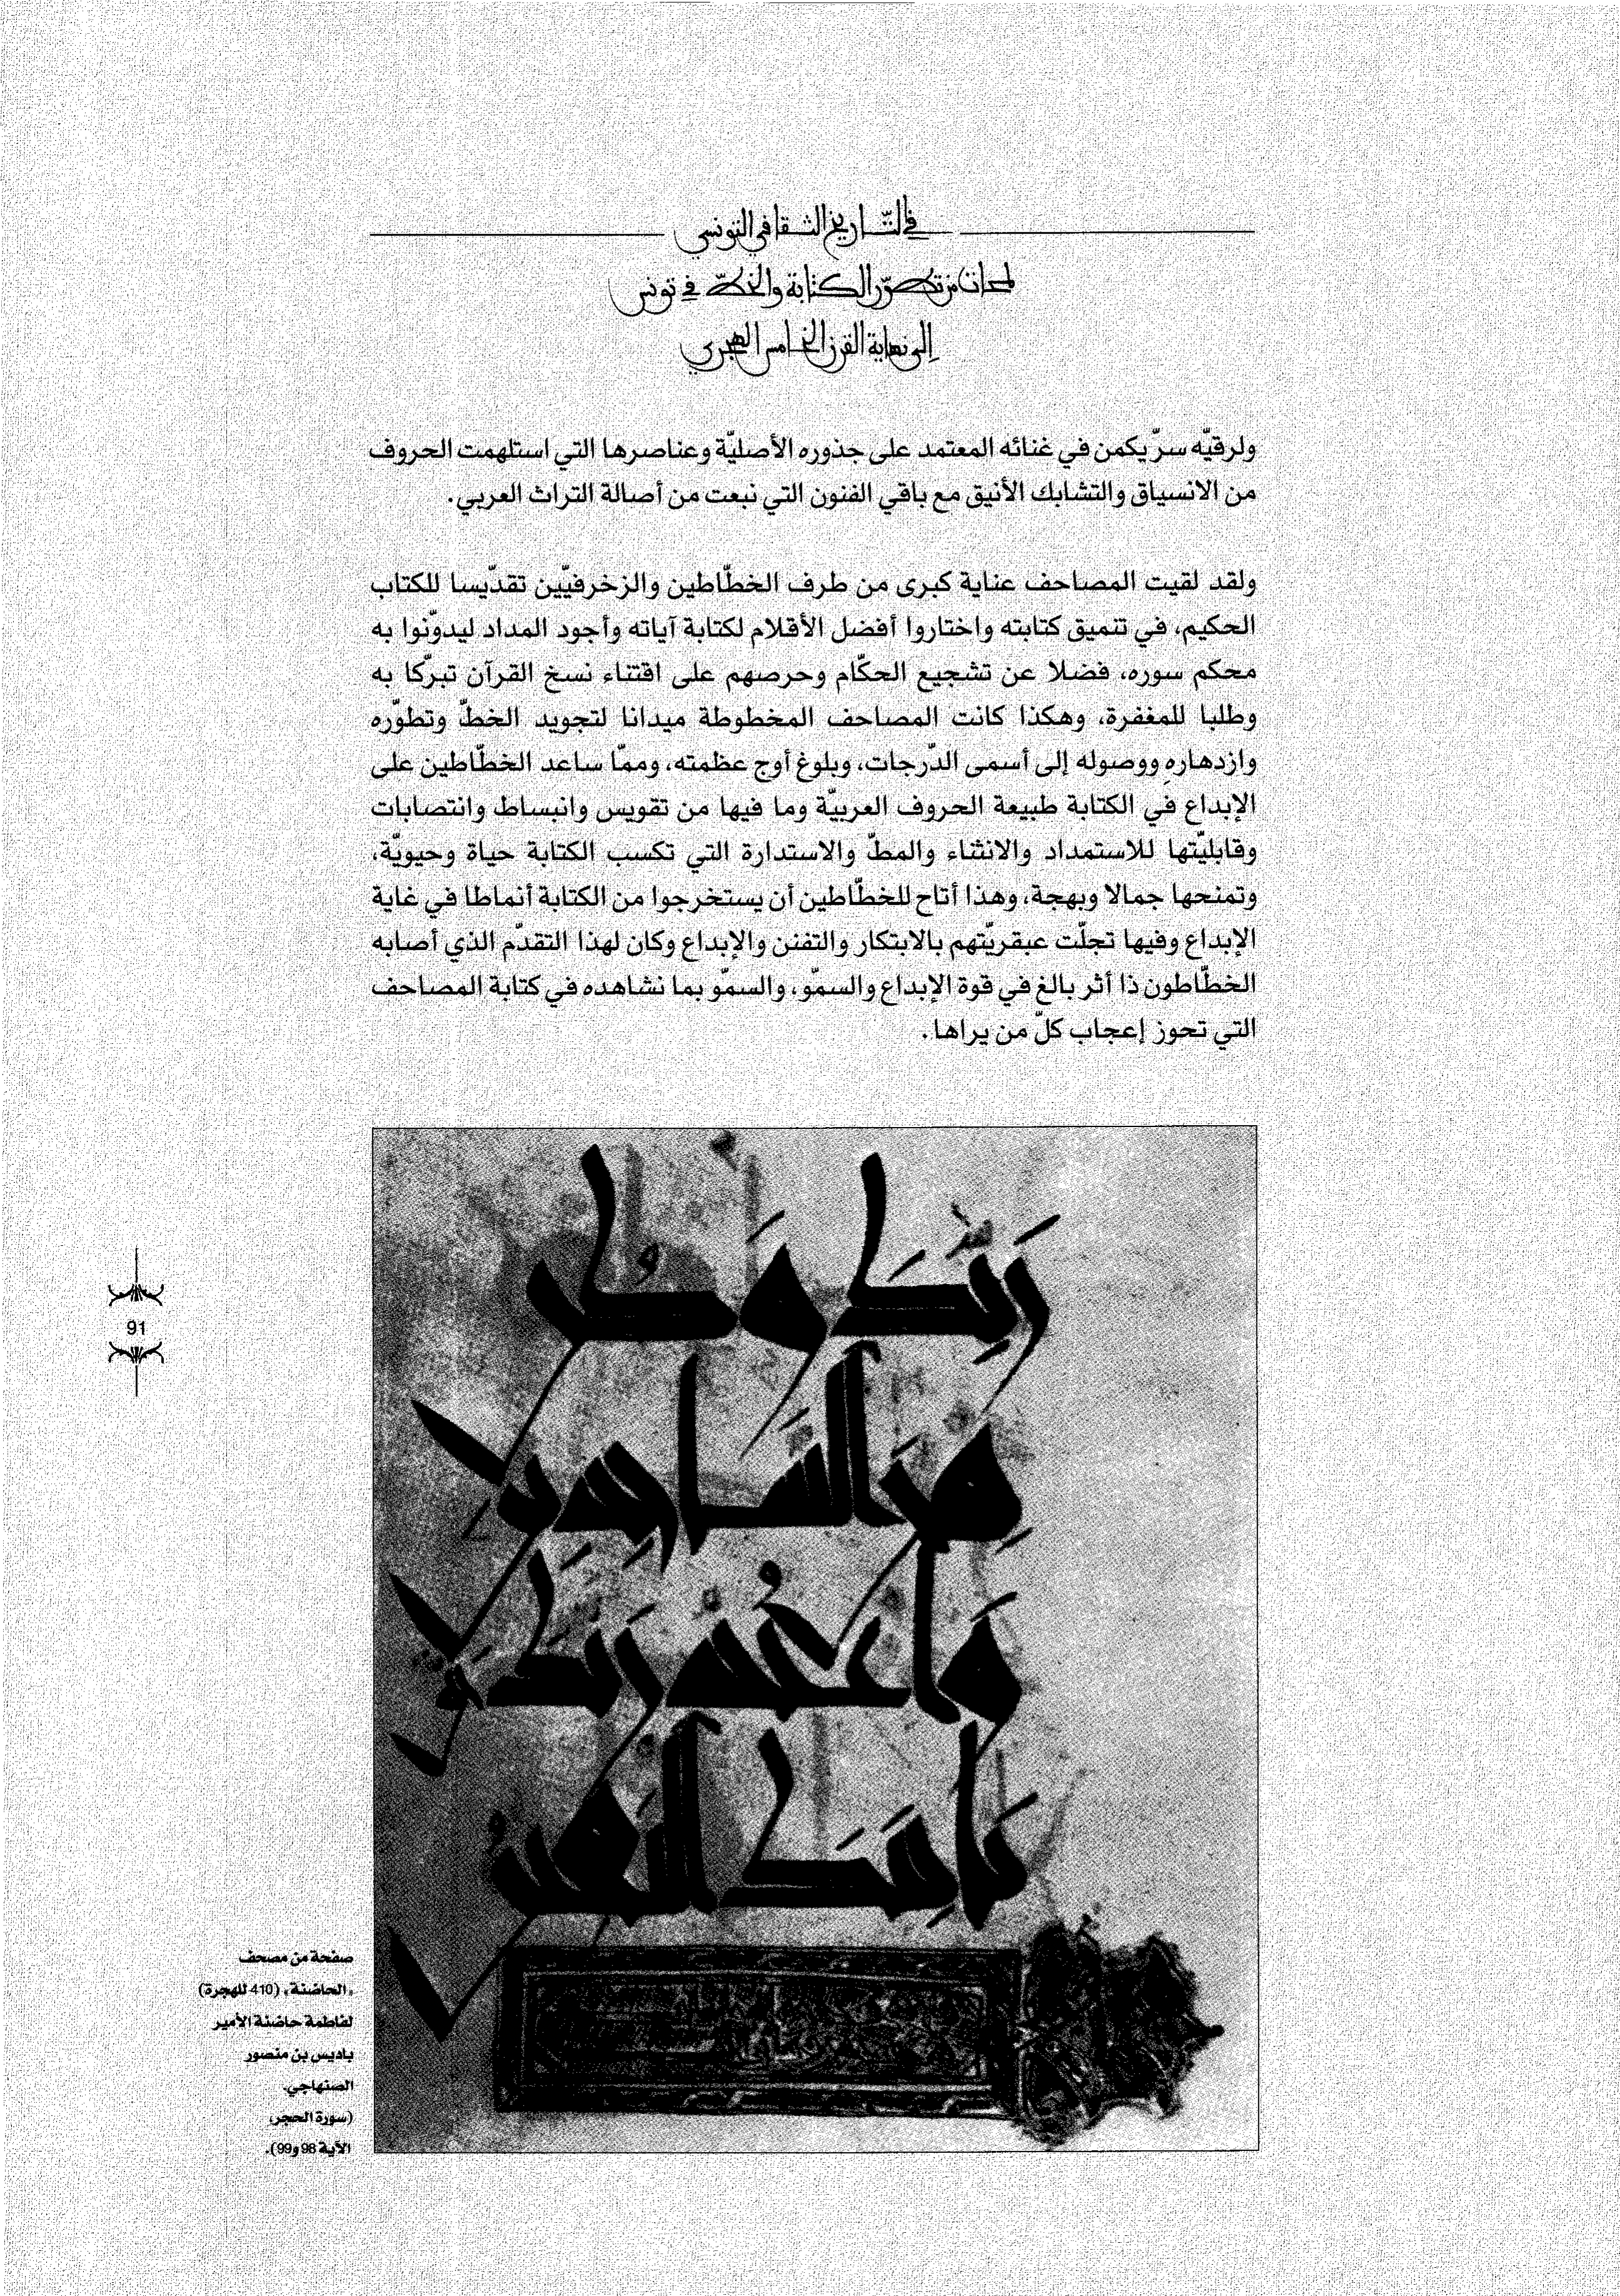 في التّاريخ الثقافي التونسي
لمحات من تطوّر الكتابة والخطّ في تونس
إلى نهاية القرن الخامس الهجري
ولرقيّه سرّ يكمن في غنائه المعتمد على جذوره الأصليّة وعناصرها التي استلهمت الحروف
من الانسياق والتشابك الأنيق مع باقي الفنون التي نبعت من أصالة التراث العربي.
ولقد لقيت المصاحف عناية كبرى من طرف الخطّاطين والزخرفيّين تقدّيسا للكتاب
الحكيم، في تنميق كتابته واختاروا أفضل الأقلام لكتابة آياته وأجود المداد ليدوّنوا به
محكم سوره، فضلا عن تشجيع الحكّام وحرصهم على اقتناء نسخ القرآن تبرّكا به
وطلبا للمغفرة، وهكذا كانت المصاحف المخطوطة ميدانا لتجويد الخطّ وتطوّره
وازدهاره ووصوله إلى أسمى الدّرجات، وبلوغ أوج عظمته، وممّا ساعد الخطّاطين على
الإبداع في الكتابة طبيعة الحروف العربيّة وما فيها من تقويس وانبساط وانتصابات
وقابليّتها للاستمداد والانثناء والمطّ والاستدارة التي تكسب الكتابة حياة وحيويّة،
وتمنحها جمالا وبهجة، وهذا أتاح للخطّاطين أن يستخرجوا من الكتابة أنماطا في غاية
الإبداع وفيها تجلّت عبقريّتهم بالابتكار والتفنن والإبداع وكان لهذا التقدّم الذي أصابه
الخطّاطون ذا أثر بالغ في قوة الإبداع والسموّ، والسموّ بما نشاهده في كتابة المصاحف
التي تحوز إعجاب كلّ من يراها.
رَبِّكَ وَكُن
مِنَ السَّاجِدِين
وَاعْبُدْ رَبَّكَ
يَأْتِيَكَ الْيَقِينُ
91
صفحة من مصحف
«الحاضنة» (410 للهجرة)
لفاطمة حاضنة الأمير
باديس بن منصور
الصنهاجي.
(سورة الحجر،
الآية 98 و99).